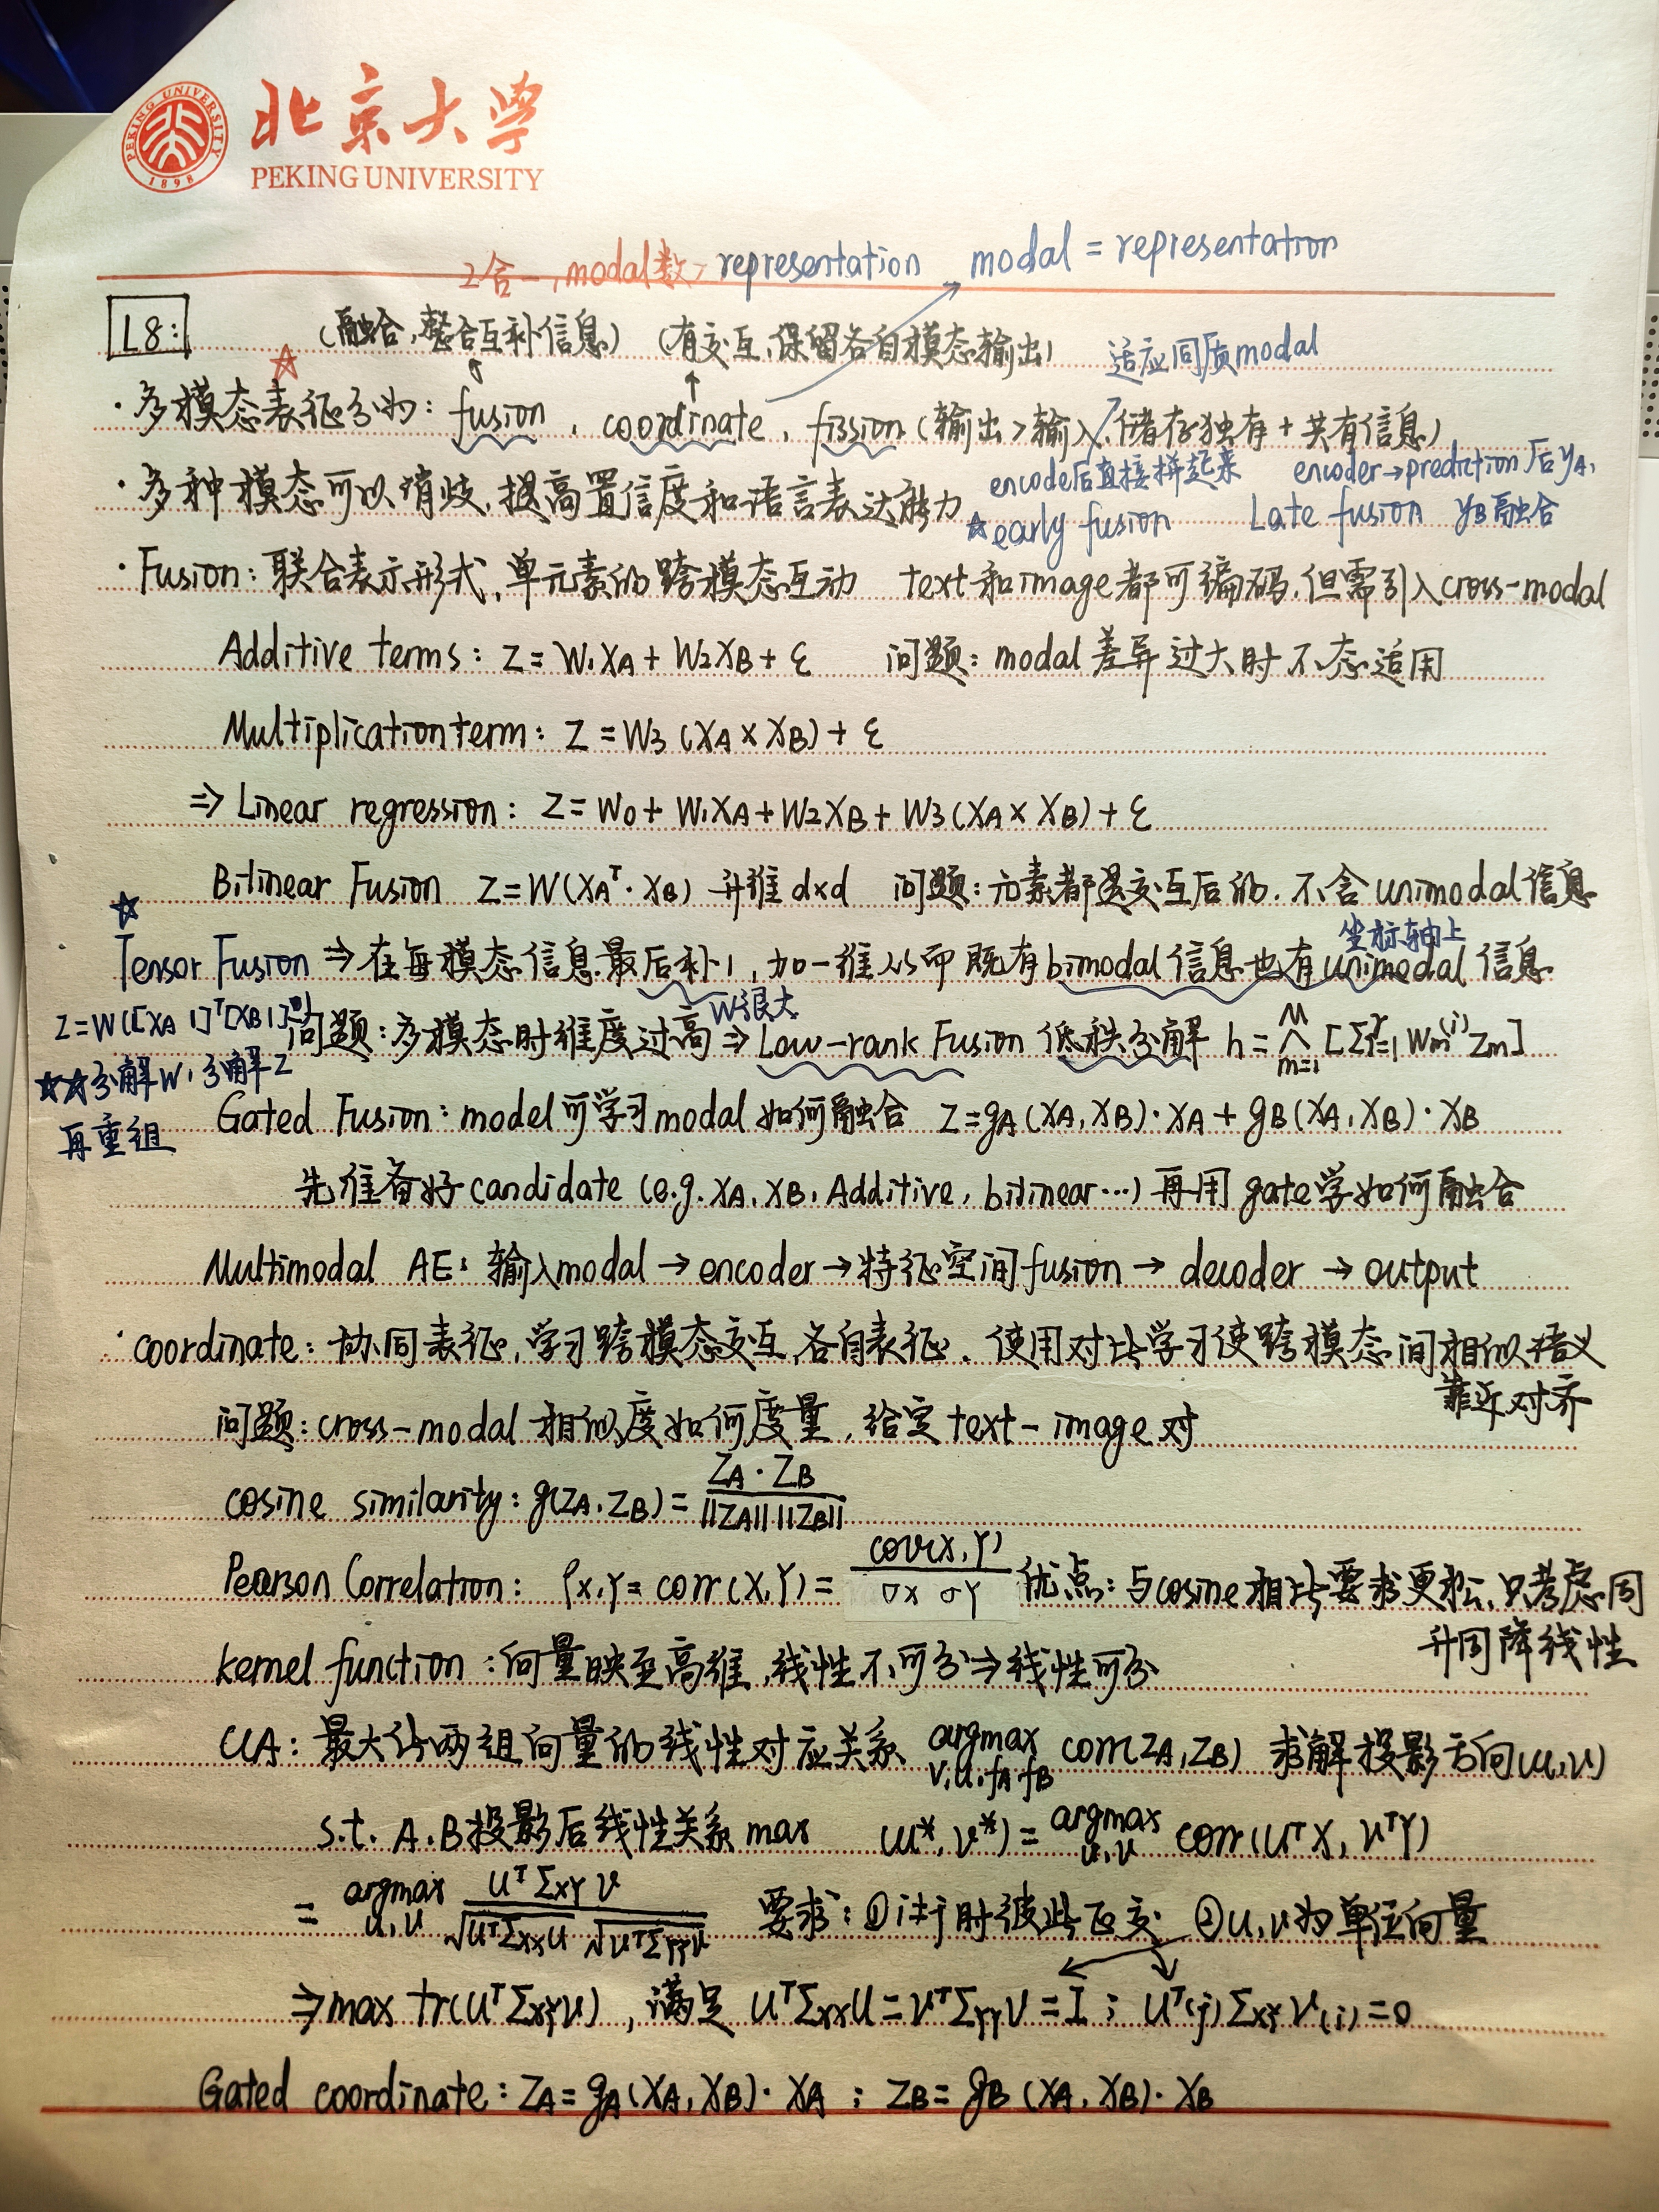 PEKING UNIVERSITY
1898
北京大学
PEKING UNIVERSITY
2合一, modal数>representation modal = representation
L8:
(融合,整合互补信息) (有交互,保留各自模态输出) 适应同质modal
·多模态表征分为: fusion, coordinate, fission (输出>输入,储存独有+共有信息)
encode后直接拼起来 encoder→prediction后yA,
·多种模态可以消歧,提高置信度和语言表达能力
☆early fusion Late fusion yB融合
·Fusion: 联合表示形式,单元素的跨模态互动 text和image都可编码,但需引入cross-modal
Additive terms: Z = W1XA + W2XB + ε 问题: modal差异过大时不适用
Multiplication term: Z = W3 (XA × XB) + ε
⇒ Linear regression: Z = W0 + W1XA + W2XB + W3 (XA × XB) + ε
Bilinear Fusion Z = W(XA^T · XB) 升维 d×d 问题: 元素都是交互后的,不含unimodal信息
坐标轴上
☆Tensor Fusion ⇒ 在每模态信息最后补1,加一维从而既有bimodal信息也有unimodal信息
Z=W([XA 1]^T[XB 1])
W很大
问题: 多模态时维度过高 ⇒ Low-rank Fusion 低秩分解 h = Λ_{m=1}^{M} [Σ_{i=1}^{r} Wm^(i) Zm]
☆☆分解W,分解Z
再重组
Gated Fusion: model可学习modal如何融合 Z = gA (XA, XB) · XA + gB (XA, XB) · XB
先准备好candidate (e.g. XA, XB, Additive, bilinear…) 再用gate学如何融合
Multimodal AE: 输入modal → encoder → 特征空间fusion → decoder → output
·coordinate: 协同表征,学习跨模态交互,各自表征. 使用对比学习使跨模态间相似语义
靠近对齐
问题: cross-modal 相似度如何度量,给定text-image对
cosine similarity: g(ZA, ZB) = ZA · ZB / ||ZA|| ||ZB||
Pearson Correlation: ρX,Y = corr(X,Y) = cov(X,Y) / σX σY 优点: 与cosine相比要求更松,只考虑同
升同降线性
kernel function: 向量映至高维,线性不可分⇒线性可分
CCA: 最大化两组向量的线性对应关系 argmax_{V,U,fA,fB} corr(ZA, ZB) 求解投影方向(u,v)
s.t. A,B投影后线性关系max (u*, v*) = argmax_{u,v} corr(U^T X, V^T Y)
= argmax_{u,v} U^T ΣXY V / √U^T ΣXX U √V^T ΣYY V 要求: ①i≠j时彼此正交 ②u,v为单位向量
⇒ max tr(U^T ΣXY V), 满足 U^T ΣXX U = V^T ΣYY V = I ; U^T(j) ΣXY V(i) = 0
Gated coordinate: ZA = gA(XA, XB) · XA ; ZB = gB (XA, XB) · XB